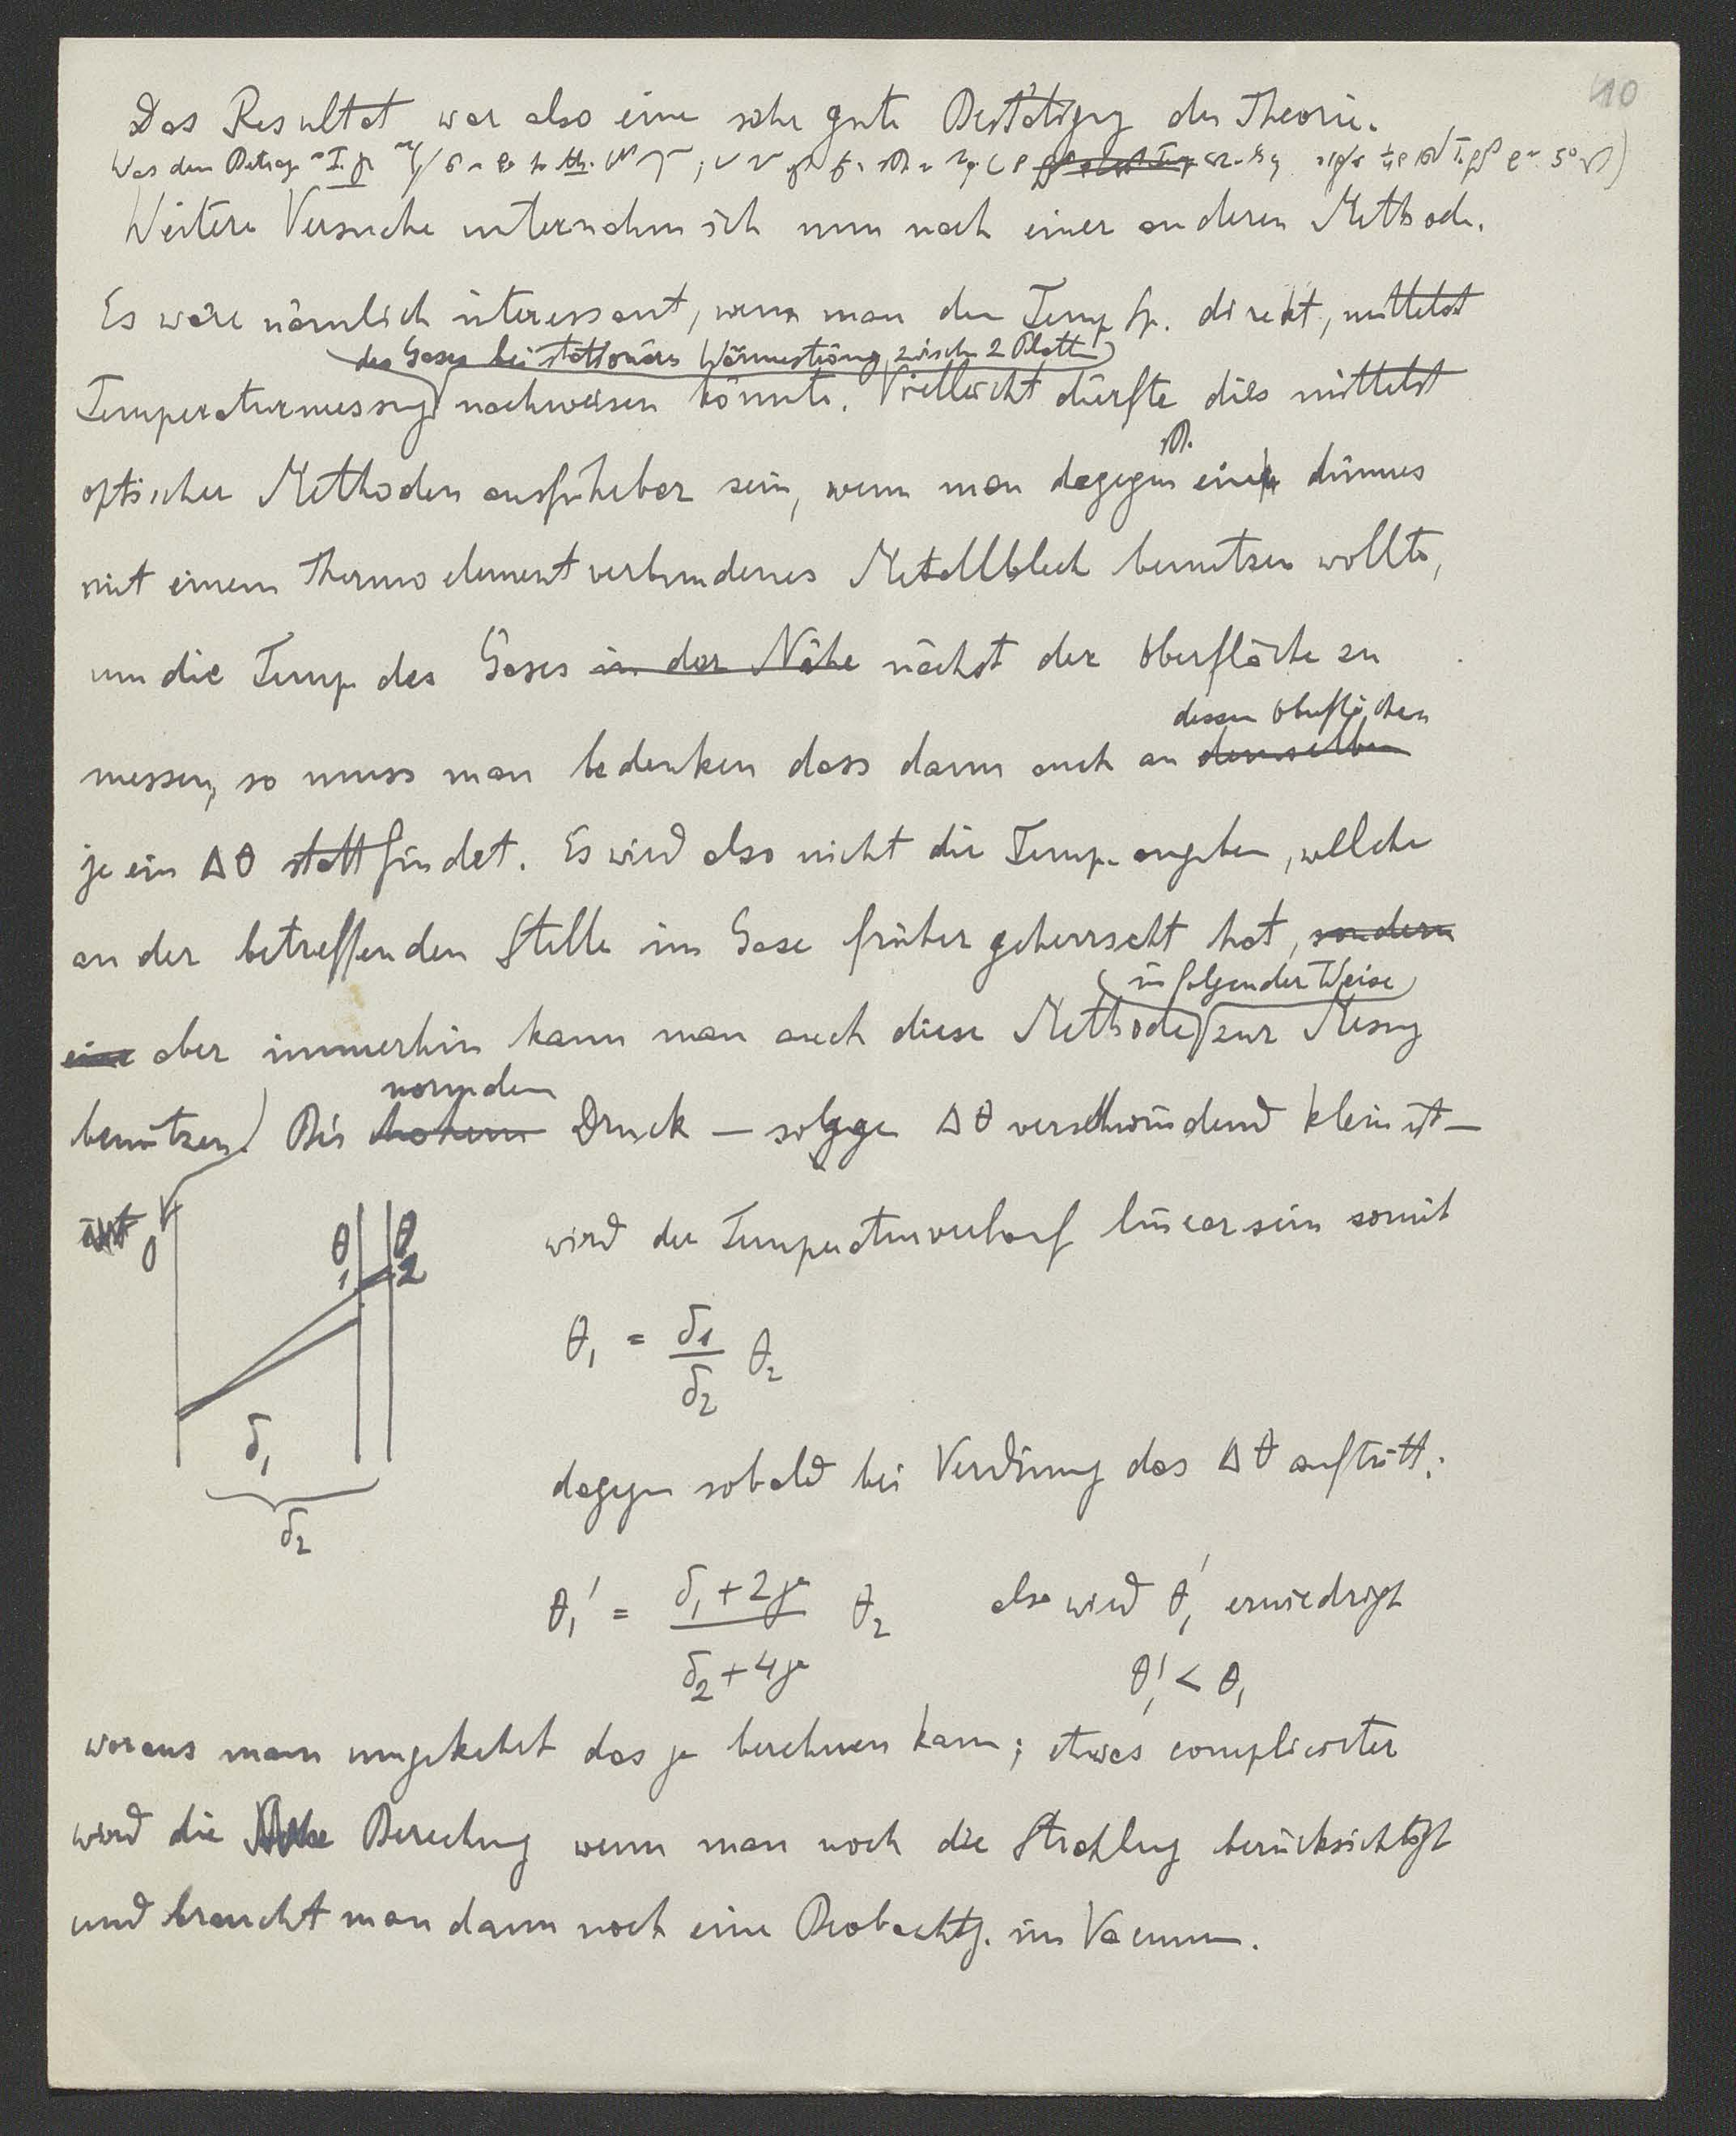 10
Das Resultat war also eine sehr gute Bestätigg der Theorie.
Was den Betrag
Weitere Versuche unternahm ich nun nach einer anderen Methode.
Es wäre nämlich interessant, wenn man den Temp Sp. direkt, mittelst
des Gases bei stationärer Wärmeströmg zwischen 2 Platten
Temperaturmessung nachweisen könnte. Vielleicht dürfte dies mittelst
optischer Methoden ausführbar sein, wenn man dagegen ein dünnes
mit einem Thermoelement verbundenes Metallblech benutzen wollte,
um die Temp des Gases in der Nähe nächst der Oberfläche zu
dessen Oberflächen
messen, so muss man bedenken dass dann auch an demselben
je ein Δθ stattfindet. Es wird also nicht die Temp. angeben, welche
an der betreffenden Stelle im Gase früher geherrscht hat, sondern
in folgender Weise
eine aber immerhin kann man auch diese Methode zur Messg
normalem
benützen. Bei hohem Druck — solange Δθ verschwindend klein ist —
ist
0 θ₁ θ₂
wird der Temperaturverlauf linear sein somit
θ₁ = δ₁/δ₂ θ₂
δ₁
δ₂
dagegen sobald bei Verdünng das Δθ auftritt:
θ₁' = (δ₁ + 2γ)/(δ₂ + 4γ) θ₂ also wird θ₁' erniedrigt
θ₁' < θ₁
woraus man umgekehrt das γ berechnen kann; etwas complicirter
wird die Berechng wenn man noch die Strahlung berücksichtigt
und braucht man dann noch eine Beobachtg. im Vacuum.